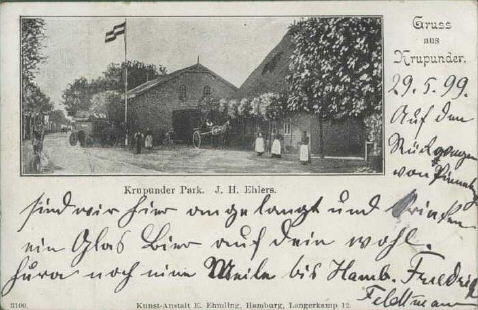 Gruss
aus
Krupunder.
29.5.99.
Auf dem
von
Krupunder Park. J. H. Ehlers.
sind wir hier angelangt und trinken
ein Glas Bier auf dein wohl.
hura noch eine Meile bis Hamb. Friedrich
Feldtmann
3100. Kunst-Anstalt E. Ehmling, Hamburg, Langerkamp 12.